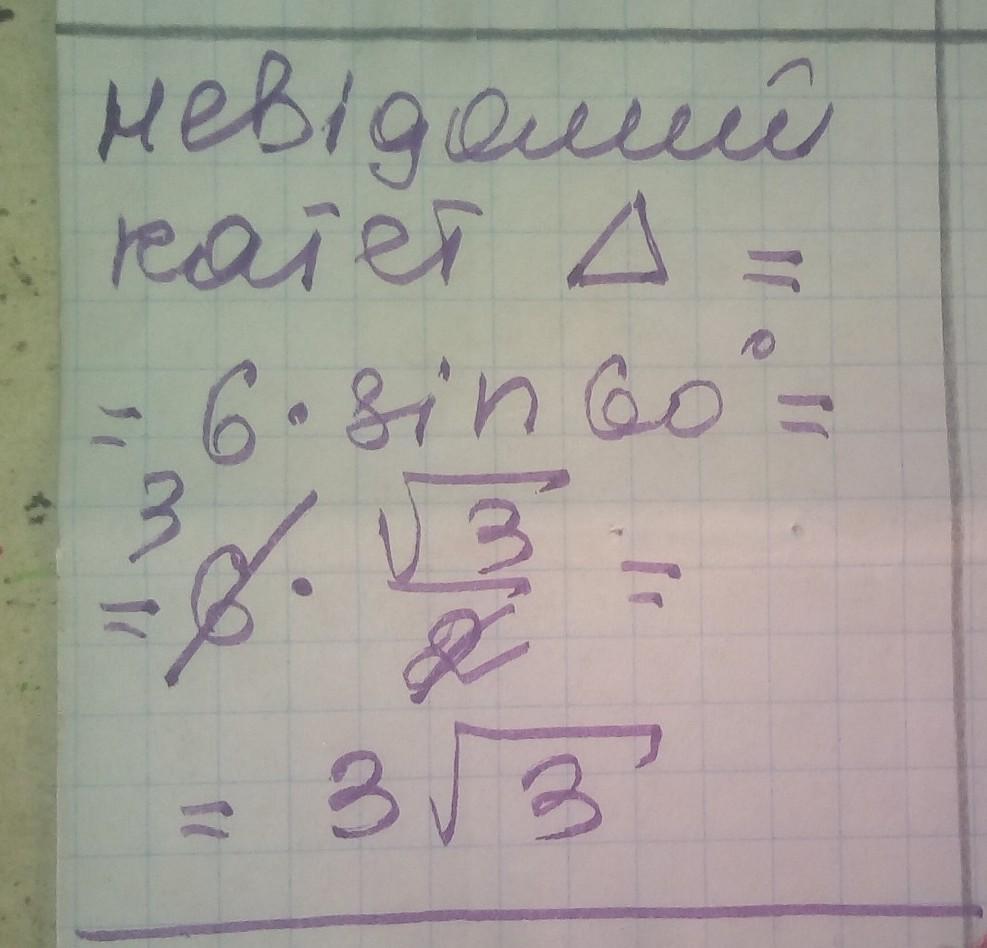 невідомий
катет △ =
= 6 · sin 60° =
= 6 · √3/2 =
3
= 3√3